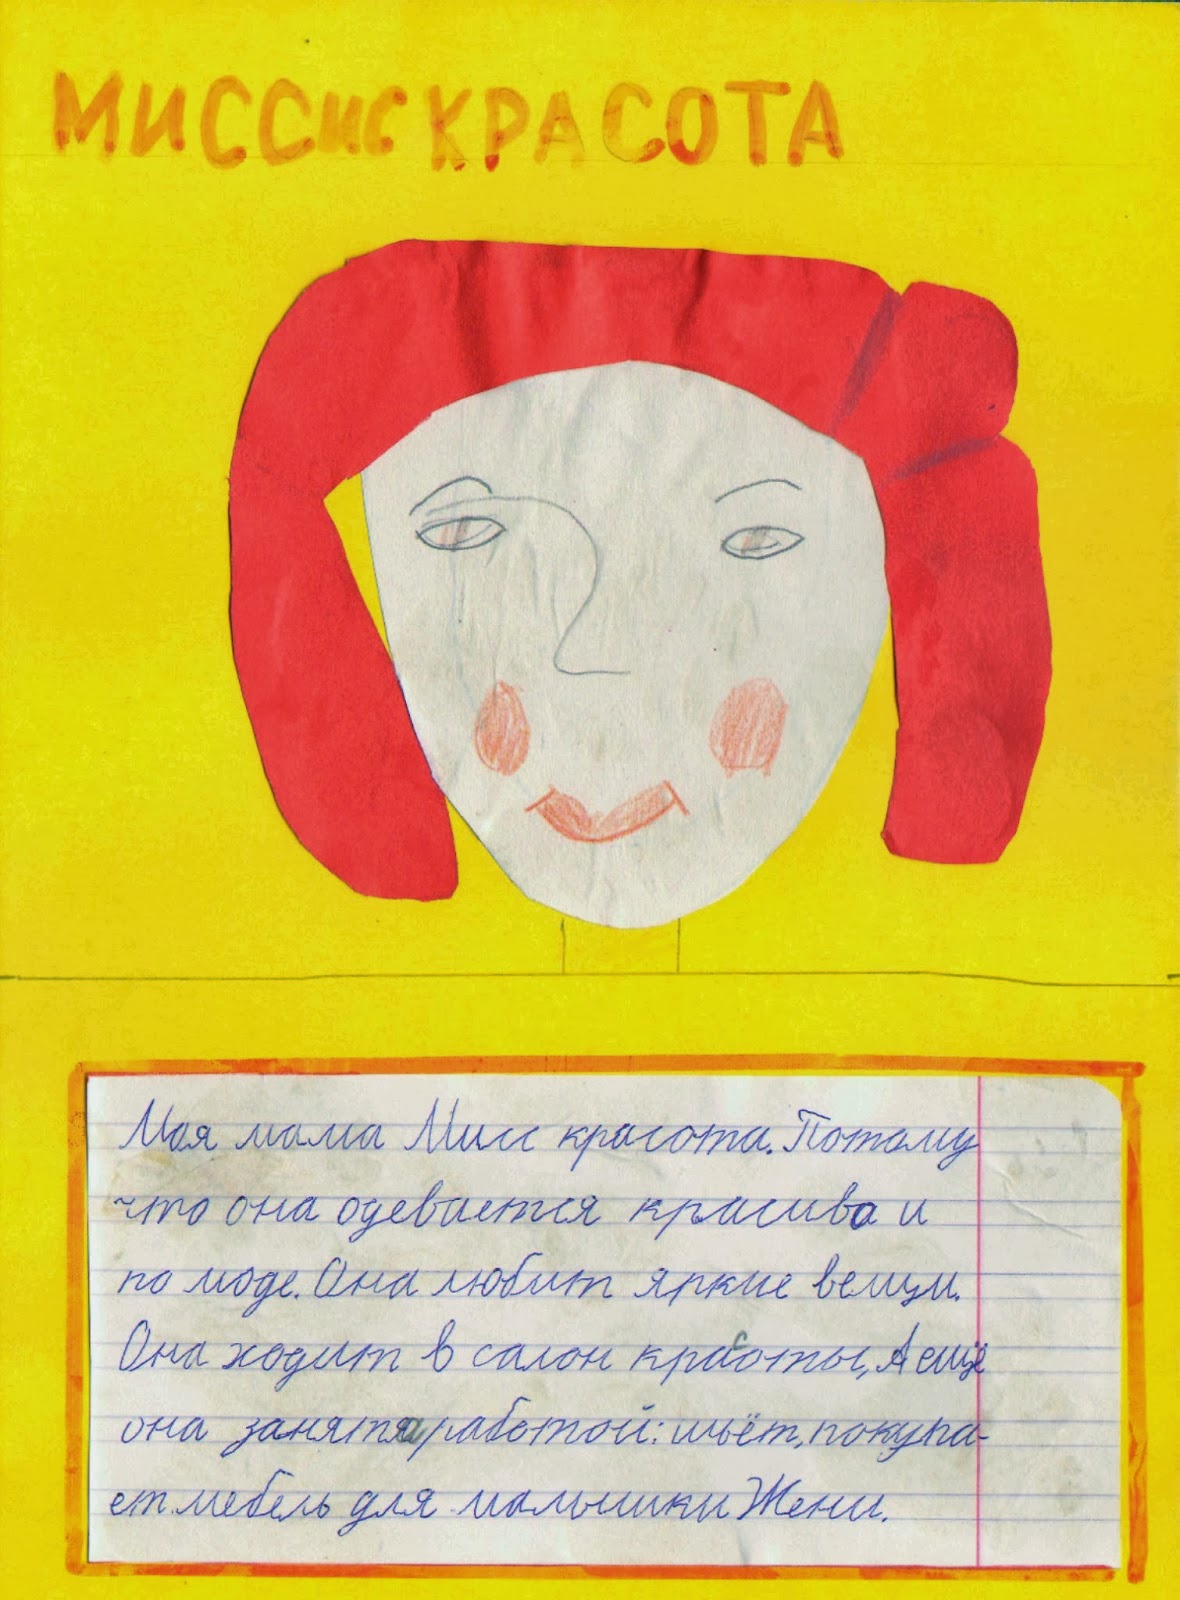 МИССИС КРАСОТА
Моя мама Мисс красота. Потому
что она одевается красиво и
по моде. Она любит яркие вещи.
Она ходит в салон красоты, А ещё
она занята работой: шьёт, покупа-
ет мебель для малышки Жени.